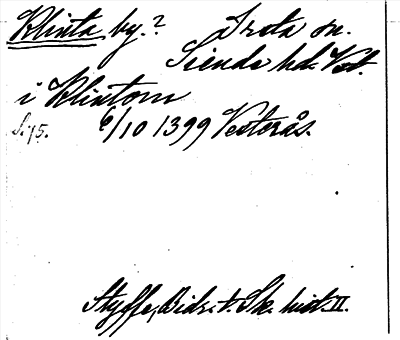 Klinta by.? Irsta sn.
Siende hd. Vst.
i Klintom
S. 75. 6/10 1399 Vesterås.
Styffe, Bidr. t. Sk. hist. II.